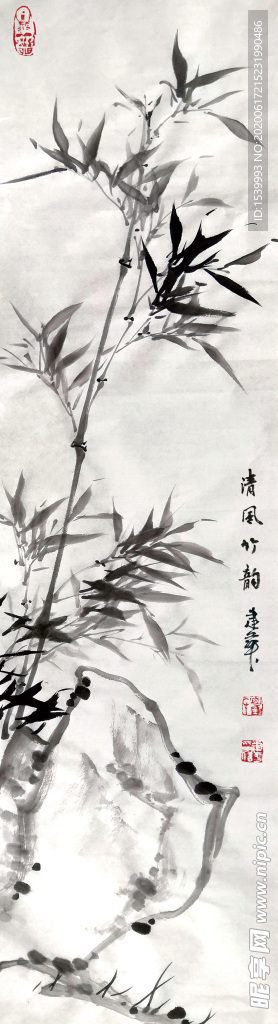 ID:1539993 NO:20200617215231990486
清风竹韵
建华
昵享网 www.nipic.cn